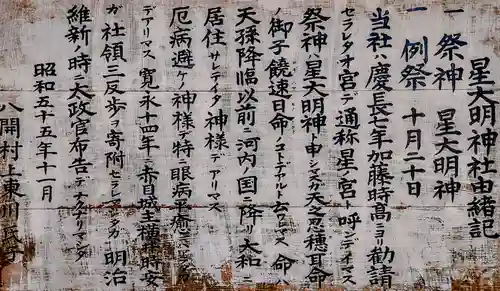 星大明神社由緒記
一 祭神 星大明神
一 例祭 十月二十日
当社ハ慶長七年加藤時高ニヨリ勧請
セラレタオ宮デ通称星ノ宮ト呼ンデイマス
祭神ノ星大明神ト申シマスガ天之忍穂耳命
ノ御子饒速日命ノコトデアルト云ワレマス 命ハ
天孫降臨以前ニ河内ノ国ニ降リ大和ニ
居住サレテイタ神様デアリマス
厄病避ケノ神様デ特ニ眼病平癒ニ
デアリマス 寛永十四年ニ赤目城主横井時安
ガ社領三反歩ヲ寄附セラレマシタガ明治
維新ノ時ニ太政官布告デナクナリマシタ
昭和五十五年十一月
八開村上東川